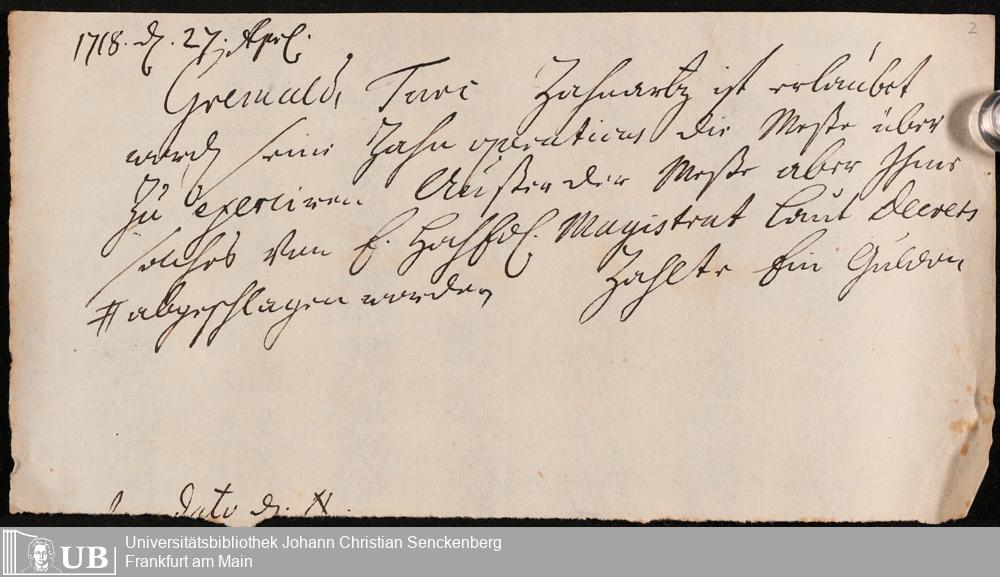 2
1718. d. 27. Apl.
Grimaldi Turc Zahnartz ist erlaubet
word seine Zahn operations die Meße über
Zu exerciren Außer der Meße aber Ihme
solches von E. Hochedl. Magistrat Laut Decrets
abgeschlagen worden Zahlte Ein Gulden
dato d.
UB
Universitätsbibliothek Johann Christian Senckenberg
Frankfurt am Main